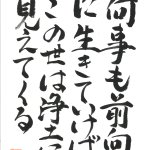 何事も前向
に生きていけば
この世は浄土に
見えてくる